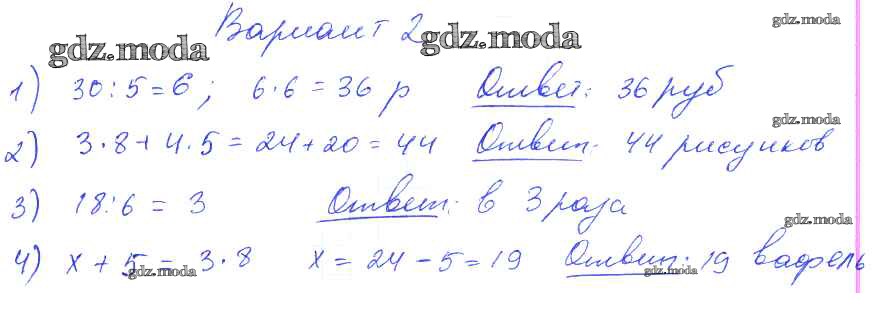 Вариант 2
gdz.moda gdz.moda gdz.moda
1) 30:5=6; 6·6=36 р Ответ: 36 руб
gdz.moda
2) 3·8+4·5=24+20=44 Ответ: 44 рисунков
3) 18:6=3 Ответ: в 3 раза
gdz.moda
4) x+5=3·8 x=24-5=19 Ответ: 19 вафель
gdz.moda gdz.moda